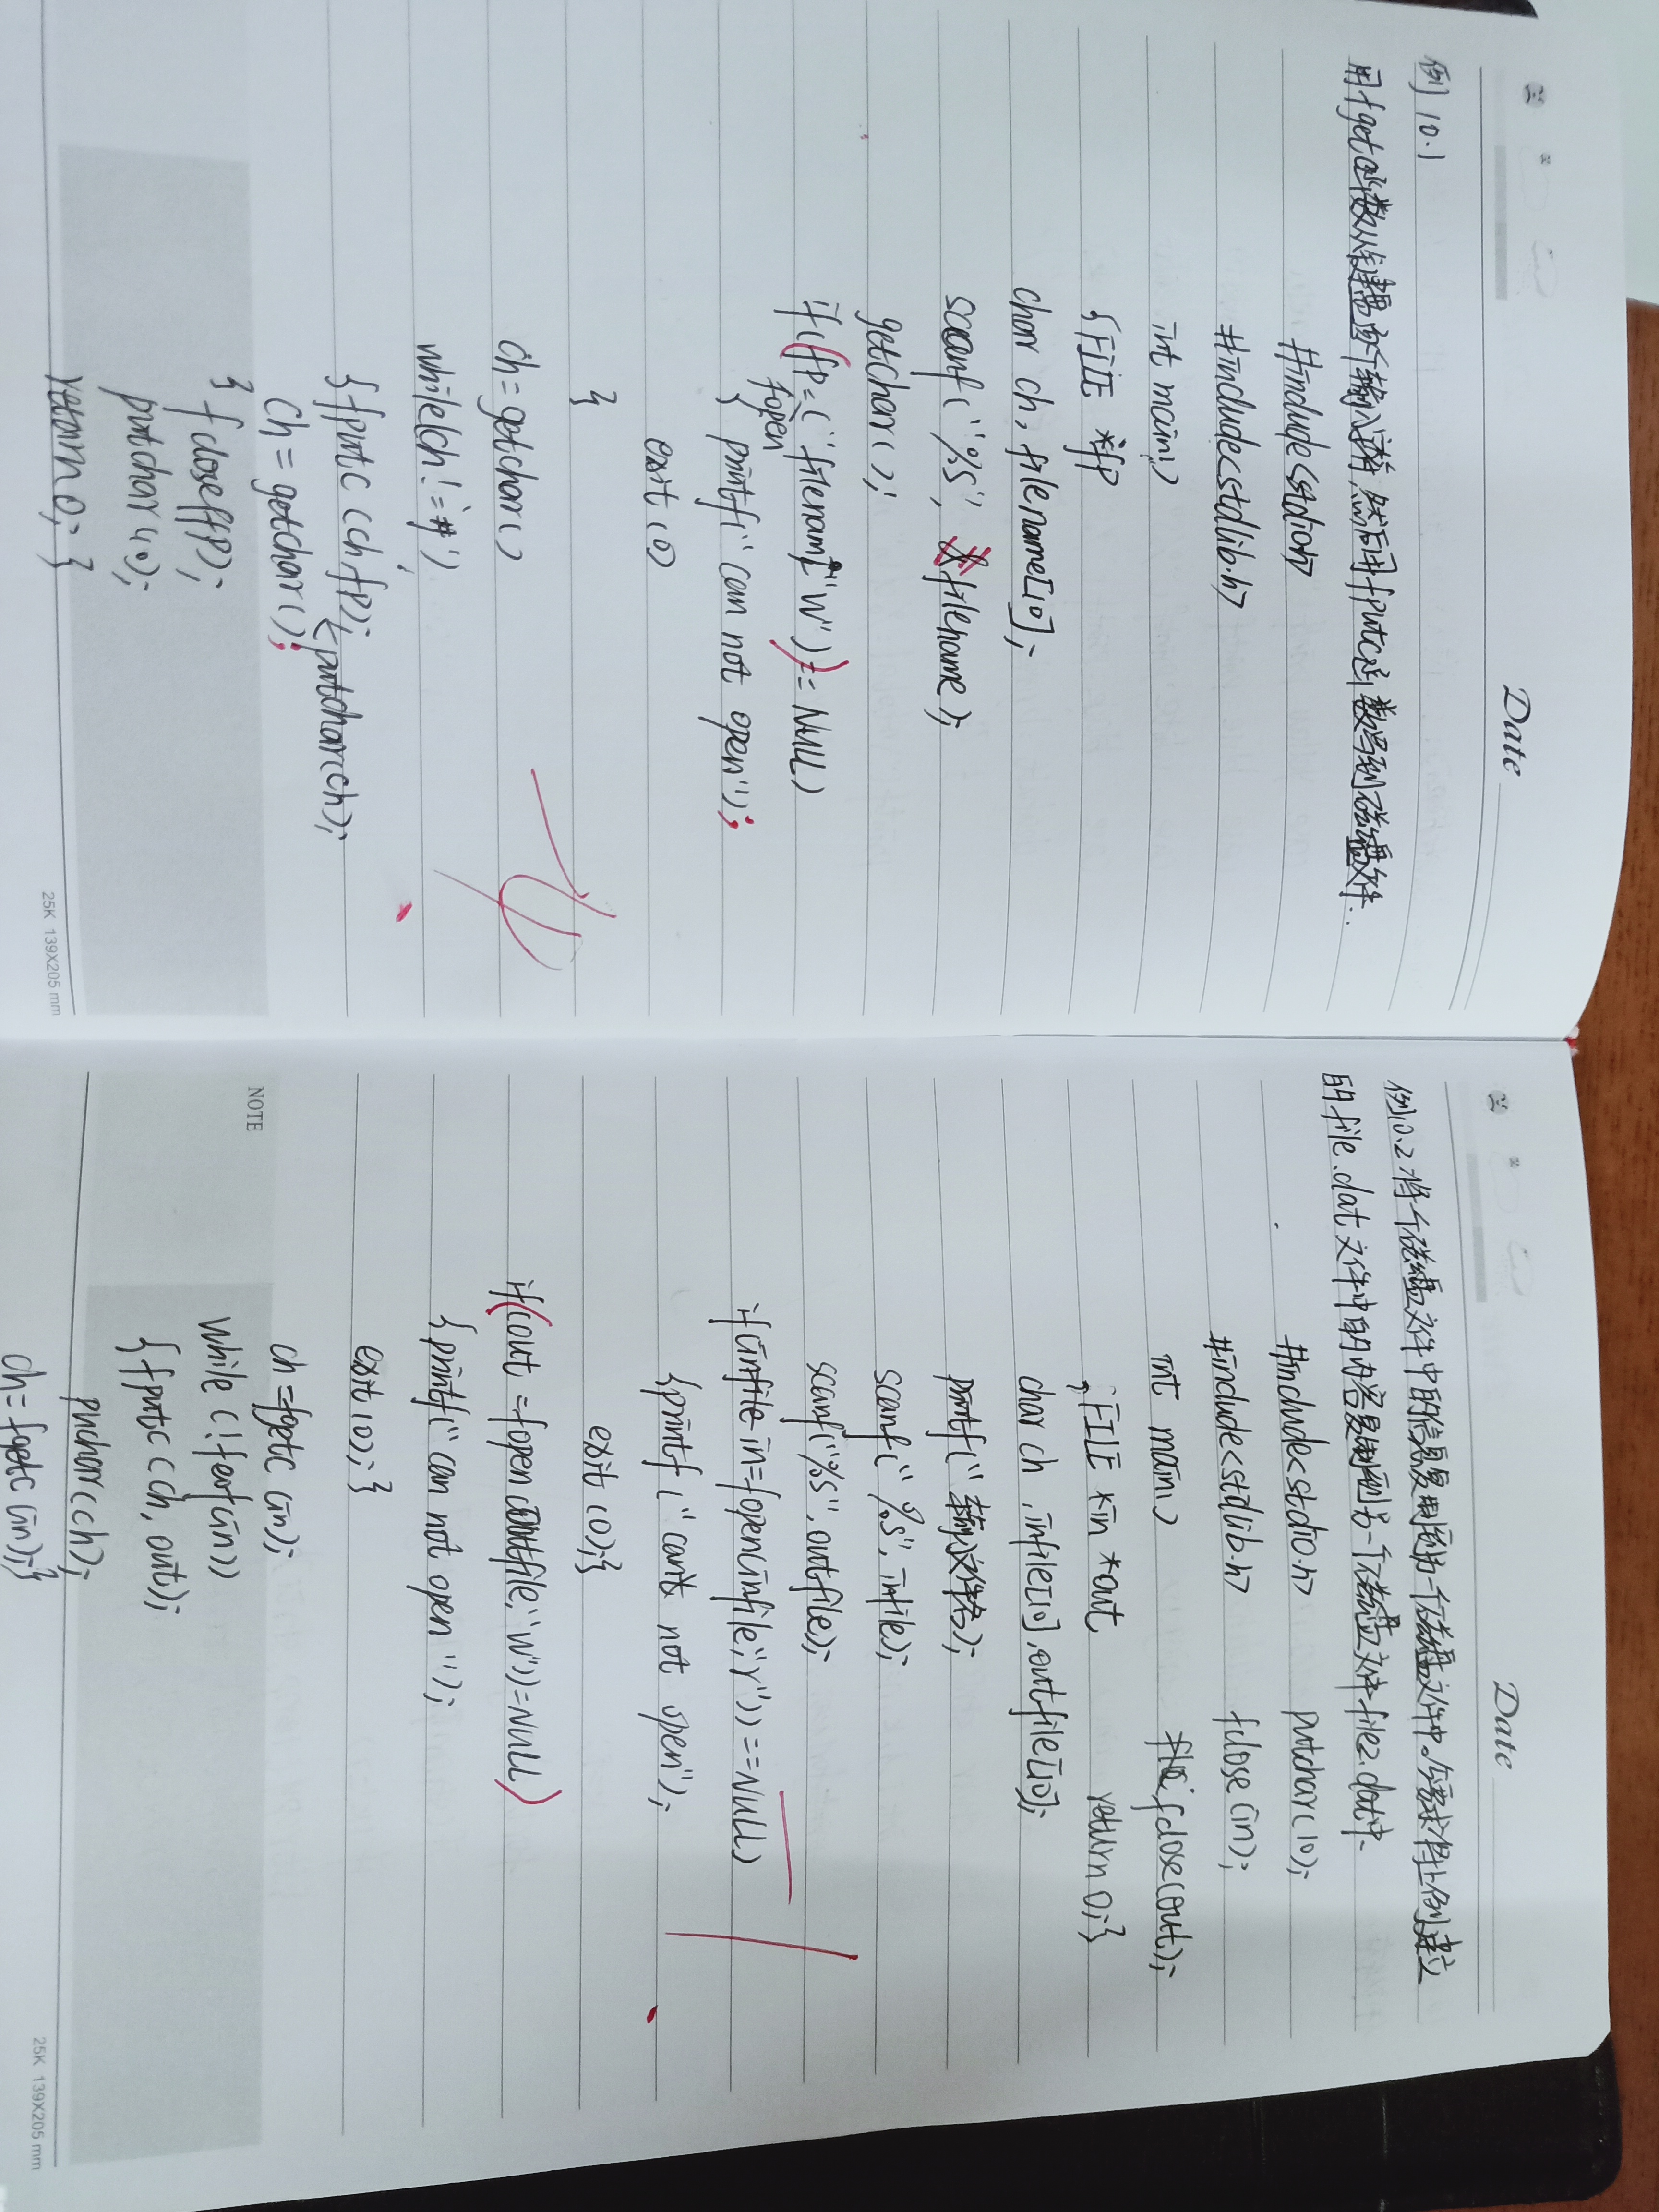 Date
例10.1
用fget函数从键盘逐个输入字符,然后用fputc函数写到磁盘文件.
#include<stdioh>
#include<stdlib.h>
int main()
{FILE *fp
char ch, filename[10];
scanf("%s", filename);
getchar();
if((fp=("filenam","w"))==NULL)
fopen
{ printf("can not open");
exit(0)
}
ch=getchar()
while(ch!='#')
{fputc(ch fp); putchar(ch);
ch=getchar();
} fclose(fp);
putchar(10);
return 0; }
25K 139X205 mm
Date
例10.2将一个磁盘文件中的信息复制到另一个磁盘文件中。今要求将上例建立
的file.dat文件中的内容复制到另一个磁盘文件file2.dat中.
#include<stdio.h> putchar(10);
#include<stdlib.h> fclose(in);
int main() fclose(out);
{FILE *in *out, return 0;}
char ch, infile[10],outfile[10];
printf("输入文件名);
scanf("%s",infile);
scanf("%s",outfile);
if((infile in=fopen(infile,"r"))==NULL)
{printf("can not open");
exit(0);}
if((out=fopen(outfile,"w")=NULL)
{printf("can not open");
exit(0);}
ch=fgetc(in);
while(!feof(in))
{fputc(ch,out);
NOTE
putchar(ch);
ch=fgetc(in);}
25K 139X205 mm